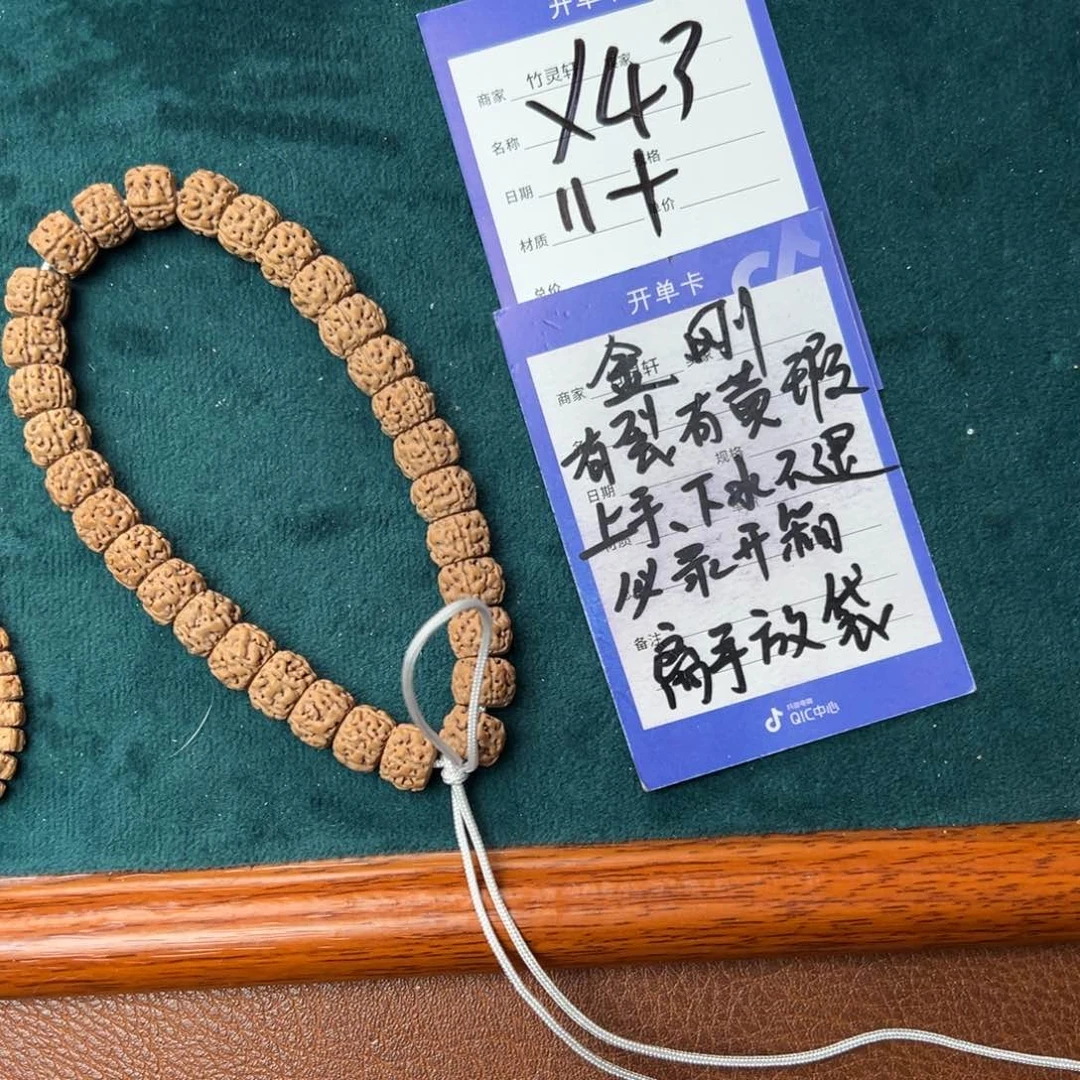 开单卡
商家 竹灵轩
Y43
名称
日期
11+
材质
总价
开单卡
金刚
商家
有裂有黄瑕
规格
日期
上手、下水不退
必录开箱
备注
离手放袋
抖音电商
QIC中心